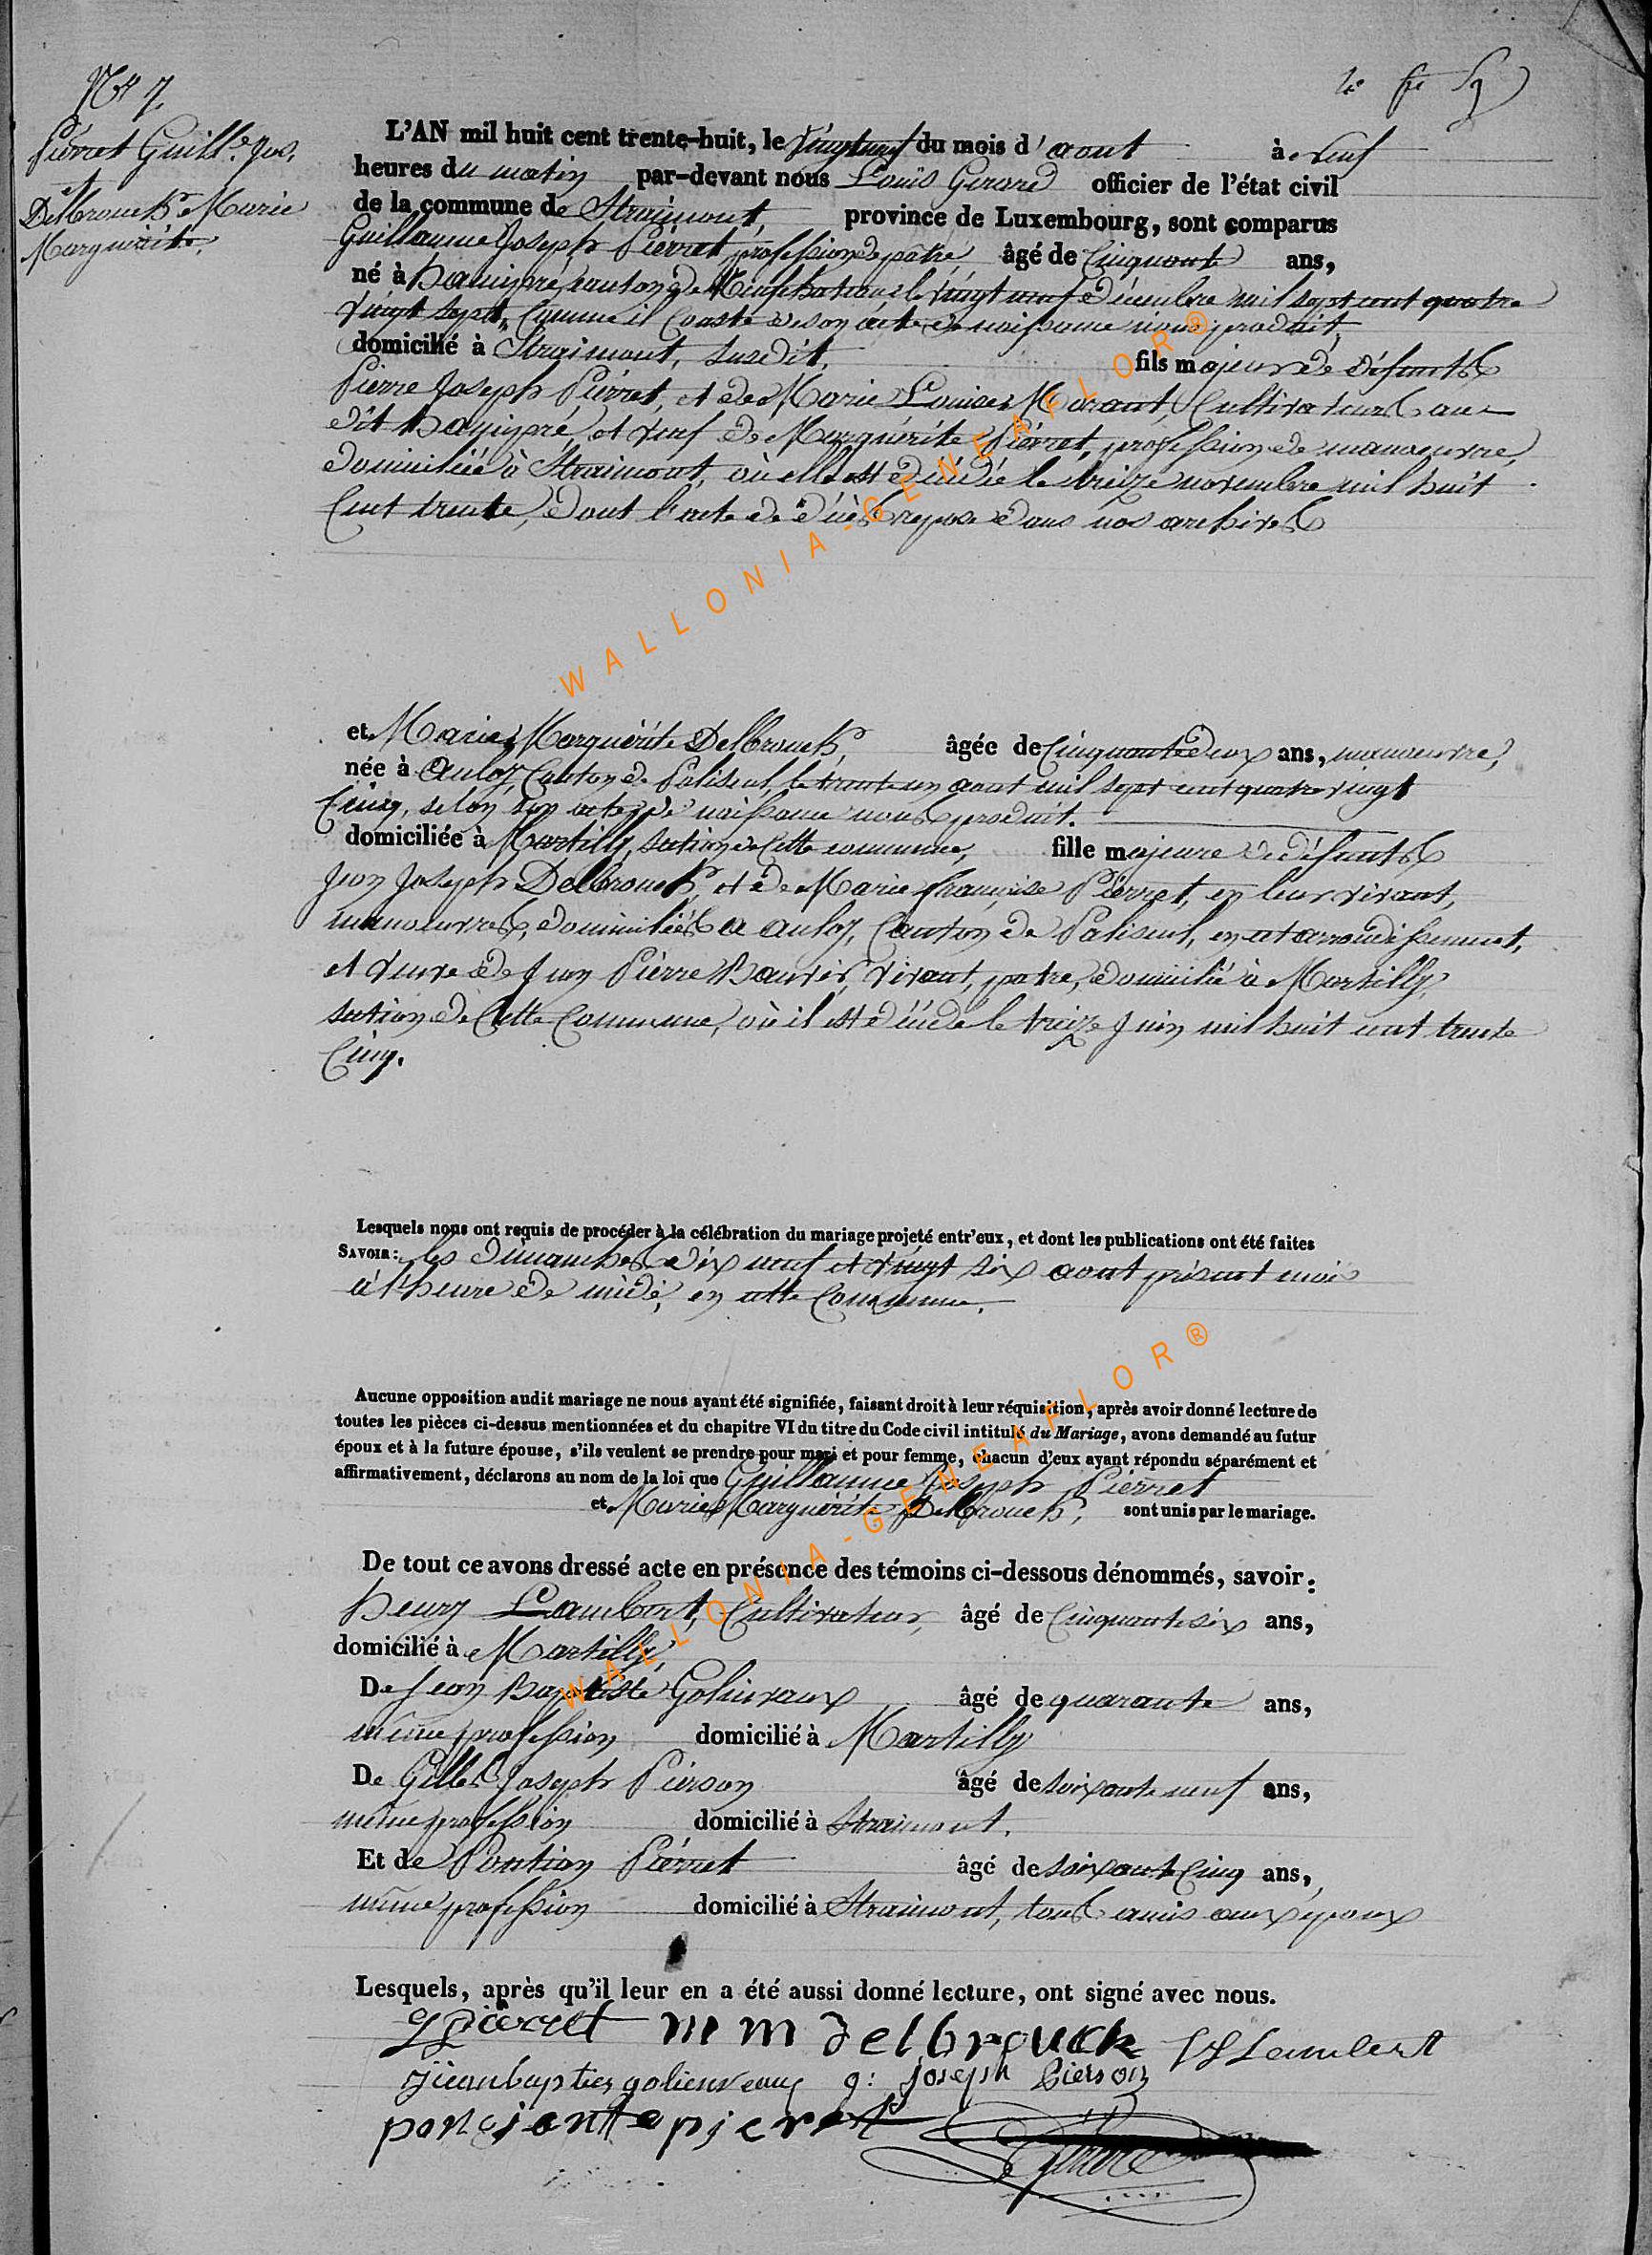 Nº 7.
Piérret Guill.e Jos.
et
Delbrouck Marie
Marguérite.
L'AN mil huit cent trente-huit, le vingt neuf du mois d'aout à neuf
heures du matin par-devant nous Louis Gerard officier de l'état civil
de la commune de Straimont, province de Luxembourg, sont comparus
Guillaume Joseph Piérret, profession de pâtre, âgé de Cinquante ans,
né à hamipré, canton de Neufchateau, le vingt neuf décembre mil sept cent quatre
vingt sept, Comme il Conste de son acte de naissance nous produit,
domicilié à Straimont, susdit, fils majeur de défunts
Pierre Joseph Piérret, et de Marie Louise Marant, Cultivateurs au
dit hamipré, et veuf de Marguérite Piérret, profession de manoeuvre,
domiciliée à Straimont, où elle est décédée le treize novembre mil huit
Cent trente, dont l'acte de décès repose dans nos archives
et Marie Marguérite Delbrouck, âgée de Cinquante deux ans, manoeuvre,
née à Auloy, Canton de Paliseul, le trente un aout mil sept cent quatre vingt
Cinq, selon son acte de naissance nous produit.
domiciliée à Martilly, section de Cette commune, fille majeure de défunts
Jean Joseph Delbrouck, et de Marie françoise Piérret, en leur vivant,
manoeuvres, domiciliés a auloy, Canton de Paliseul, en cet arrondissement,
et veuve de Jean Piérre Bauvir, vivant, patre, domicilié à Martilly,
section de Cette Commune, où il est décédé le treize Juin mil huit cent trente
Cinq.
Lesquels nous ont requis de procéder à la célébration du mariage projeté entr'eux, et dont les publications ont été faites
SAVOIR: les dimanches dix neuf et vingt six aout présent mois
à l'heure de midi, en cette Commune.
Aucune opposition audit mariage ne nous ayant été signifiée, faisant droit à leur réquisition, après avoir donné lecture de
toutes les pièces ci-dessus mentionnées et du chapitre VI du titre du Code civil intitulé du Mariage, avons demandé au futur
époux et à la future épouse, s'ils veulent se prendre pour mari et pour femme, chacun d'eux ayant répondu séparément et
affirmativement, déclarons au nom de la loi que Guillaume Joseph Piérret
et Marie Marguérite Delbrouck, sont unis par le mariage.
De tout ce avons dressé acte en présence des témoins ci-dessous dénommés, savoir:
henry Lambert, Cultivateur, âgé de Cinquante six ans,
domicilié à Martilly,
De Jean Baptiste Golinvaux âgé de quarante ans,
même profession domicilié à Martilly
De Gilles Joseph Piérson âgé de soixante neuf ans,
même profession domicilié à Straimont,
Et de Pontian Piérret âgé de soixante Cinq ans,
même profession domicilié à Straimont, tous amis aux époux
Lesquels, après qu'il leur en a été aussi donné lecture, ont signé avec nous.
g pierret m m delbrouck H Lambert
jeanbapties golienveaux g: joseph Pierson
poncjante pjeret
L Gerard
WALLONIA-GENEAFLOR®
WALLONIA-GENEAFLOR®